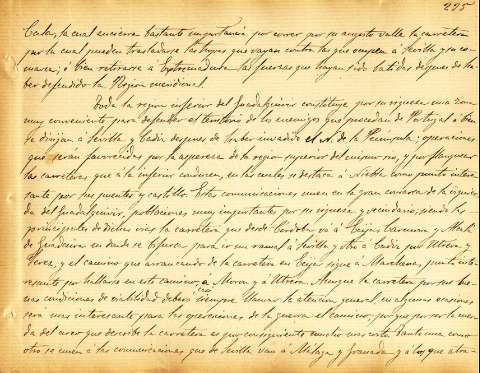 225
Cala, la cual encierra bastante importancia por correr por su angosto valle la carretera
por la cual pueden trasladarse las tropas que vayan contra las que ocupen á Sevilla y su co-
marca, ó bien retirarse á Extremadura las fuerzas que hayan sido batidas despues de ha-
ber defendido la Region meridional.
Toda la region inferior del Guadalquivir constituye por su riqueza una zona
muy conveniente para defender el territorio de los enemigos que procedan de Portugal ó bien
se dirijan á Sevilla y Cadiz despues de haber invadido el N. de la Península; operaciones
que seran favorecidas por la aspereza de la region superior del mismo rio, y por flanquear
las carreteras que á la inferior conducen, en las cuales se destaca á Niebla como punto intere-
sante por sus puentes y castillo. Estas comunicaciones unen en la gran comarca de la izquier-
da del Guadalquivir, poblaciones muy importantes por su riqueza y vecindario, siendo las
principales de dichas vias la carretera que desde Cordoba va á Ecija, Carmona y Alcalá
de Guadaira en donde se bifurca para ir un ramal á Sevilla y otro á Cadiz por Utrera y
Jerez, y el camino que arrancando de la carretera en Ecija sigue á Marchena, punto inte-
resante por hallarse en este camino, á Moron y á Utrera. Aunque la carretera por sus bue-
nas condiciones de viabilidad deberá siempre llamar la atencion general, en algunas ocasiones
será mas interesante para las operaciones de la guerra el camino, porque por ser la cuer-
da del arco que describe la carretera es por consiguiente mucho mas corto. Tanto una como
otro se unen á las comunicaciones que de Sevilla van á Málaga y Granada y á las que atra-